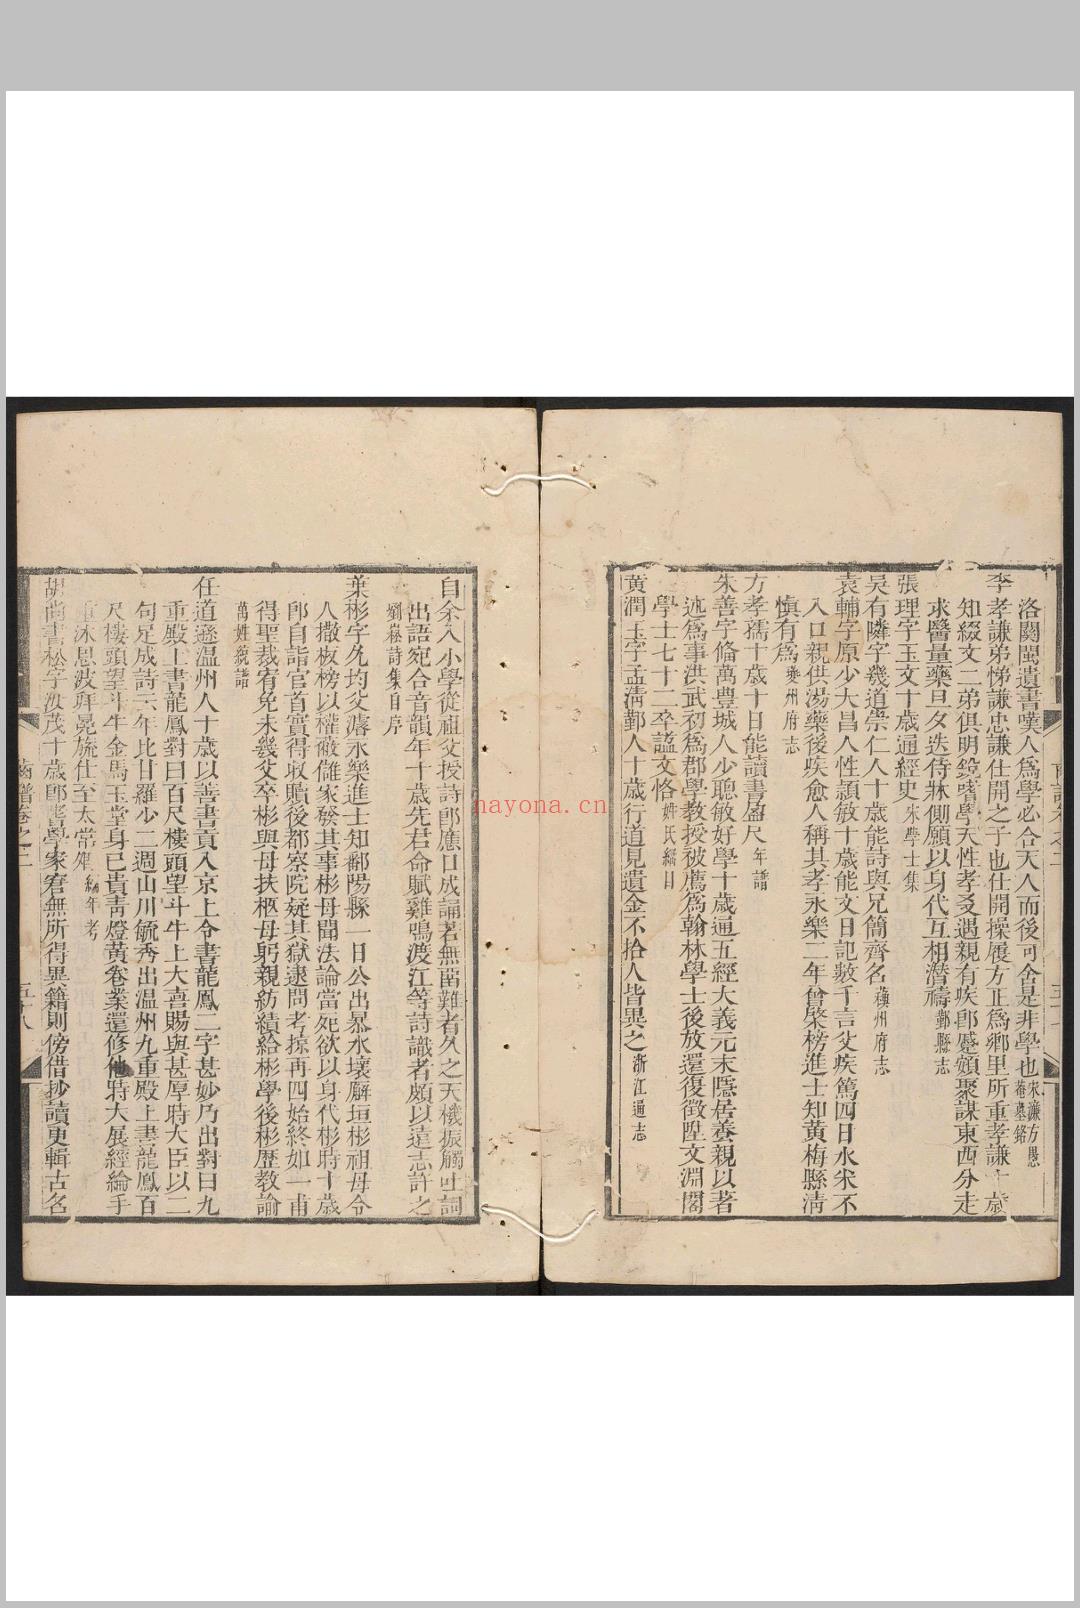 洛關閩遺書嘆人爲學必合天人而後可舍是非學也宋濂方愚菴墓銘
李孝謙弟悌謙忠謙仕開之子也仕開操履方正爲鄉里所重孝謙十歲
知綴文二弟俱明鏡嗜學天性孝友遇親有疾卽蹙頞聚謀東西分走
求醫量藥旦夕迭侍牀側願以身代互相潛禱鄞縣志
張理字玉文十歲通經史宋學士集
吳有隣字幾道崇仁人十歲能詩與兄簡齊名蘇州府志
袁輔字原少大昌人性頴敏十歲能文日記數千言父疾篤四日水米不
入口親供湯藥後疾愈人稱其孝永樂二年曾棨榜進士知黃梅縣淸
愼有爲夔州府志
方孝孺十歲十日能讀書盈尺年譜
朱善字備萬豊城人少聰敏好學十歲通五經大義元末隱居養親以著
述爲事洪武初爲郡學教授被薦爲翰林學士後放還復徵陞文淵閣
學士七十二卒諡文恪姓氏編目
黃潤玉字孟淸鄞人十歲行道見遺金不拾人皆異之浙江通志
自余入小學從祖父授詩卽應口成誦若無留難者久之天機振觸吐詞
出語宛合音韻年十歲先君命賦雞鳴渡江等詩識者頗以遠志許之
劉崧詩集自序
葉彬字允均父濬永樂進士知鄱陽縣一日公出暴水壞廨垣彬祖母令
人撤板榜以權蔽讎家發其事彬母聞法論當死欲以身代彬時十歲
卽自詣官首實得收贖後都察院疑其獄逮問考掠再四始終如一甫
得聖裁宥免未幾父卒彬與母扶柩母躬親紡績給彬學後彬歷教諭
萬姓統譜
任道遜温州人十歲以善書貢入京上令書龍鳳二字甚妙乃出對曰九
重殿上書龍鳳對曰百尺樓頭望斗牛上大喜賜與甚厚時大臣以二
句足成詩六年比甘羅少二週山川毓秀出温州九重殿上書龍鳳百
尺樓頭望斗牛金馬玉堂身已貴靑燈黃卷業還修他時大展經綸手
重沐恩波拜冕旒仕至太常卿編年考
胡尚書松字汝茂十歲卽耆學家窘無所得異籍則傍借抄讀更輯古名
齒譜卷之二
五十八